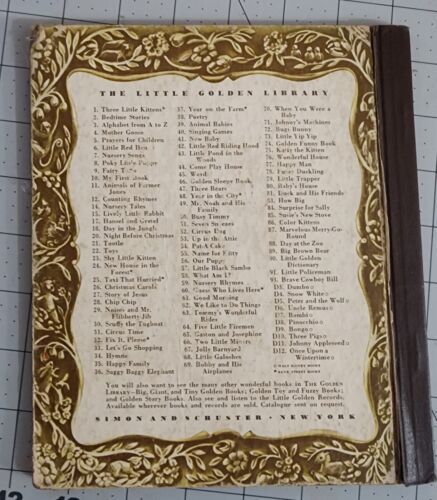 THE LITTLE GOLDEN LIBRARY
1. Three Little Kittens*
2. Bedtime Stories
3. Alphabet from A to Z
4. Mother Goose
5. Prayers for Children
6. Little Red Hen
7. Nursery Songs
8. Poky Little Puppy
9. Fairy
10. My First Book
11. Animals of Farmer
Jones
12. Counting Rhymes
14. Nursery Tales
15. Lively Little Rabbit
17. Hansel and Gretel
18. Day in the Jungle
20. Night Before Christmas
21. Tootle
22. Toys
23. Shy Little Kitten
24. New House in the
Forest*
25. Taxi That Hurried*
26. Christmas Carols
27. Story of Jesus
28. Chip Chip
29. Noises and Mr.
Flibberty-Jib
30. Scuffy the Tugboat
31. Circus Time
32. Fix It, Please*
33. Let's Go Shopping
34. Hymns
35. Happy Family
36. Saggy Baggy Elephant
37. Year on the Farm*
38. Poetry
39. Animal Babies
40. Singing Games
41. New Baby
42. Little Red Riding Hood
43. Little Pond in the
Woods
44. Come Play House
45. Words
46. Golden Sleepy Book
47. Three Bears
48. Year in the City*
49. Mr. Noah and His
Family
50. Busy Timmy
51. Seven Sneezes
52. Circus Dog
53. Up in the Attic
54. Pat-A-Cake
55. Name for Kitty
56. Our Puppy
57. Little Black Sambo
58. What Am I?
59. Nursery Rhymes
60. Guess Who Lives Here*
61. Good Morning
62. We Like to Do Things
63. Tommy's Wonderful
Rides
64. Five Little Firemen
65. Gaston and Josephine
66. Two Little Miners
67. Jolly Barnyard
68. Little Galoshes
69. Bobby and His
Airplanes
70. When You Were a
Baby
71. Johnny's Machines
72. Bugs Bunny
73. Little Yip Yip
74. Golden Funny Book
75. Katie the Kitten
76. Wonderful House
77. Happy Man
78. Fuzzy Duckling
79. Little Trapper
80. Baby's House
81. Duck and His Friends
83. How Big
84. Surprise for Sally
85. Susie's New Stove
86. Color Kittens
87. Marvelous Merry-Go-
Round
88. Day at the Zoo
89. Big Brown Bear
90. Little Golden
Dictionary
91. Little Policeman
93. Brave Cowboy Bill
D3. Dumbo
D4. Snow White
D5. Peter and the Wolf
D6. Uncle Remus
D7. Bambi
D8. Pinocchio
D9. Bongo
D10. Three Pigs
D11. Johnny Appleseed
D12. Once Upon a
Wintertime
WALT DISNEY BOOKS
* BANK STREET BOOKS
You will also want to see the many other wonderful books in THE GOLDEN
LIBRARY—Big, Giant, and Tiny Golden Books; Golden Toy and Fuzzy Books;
and Golden Story Books. Also see and listen to the Little Golden Records.
Available wherever books and records are sold. Catalogue sent on request.
SIMON AND SCHUSTER · NEW YORK